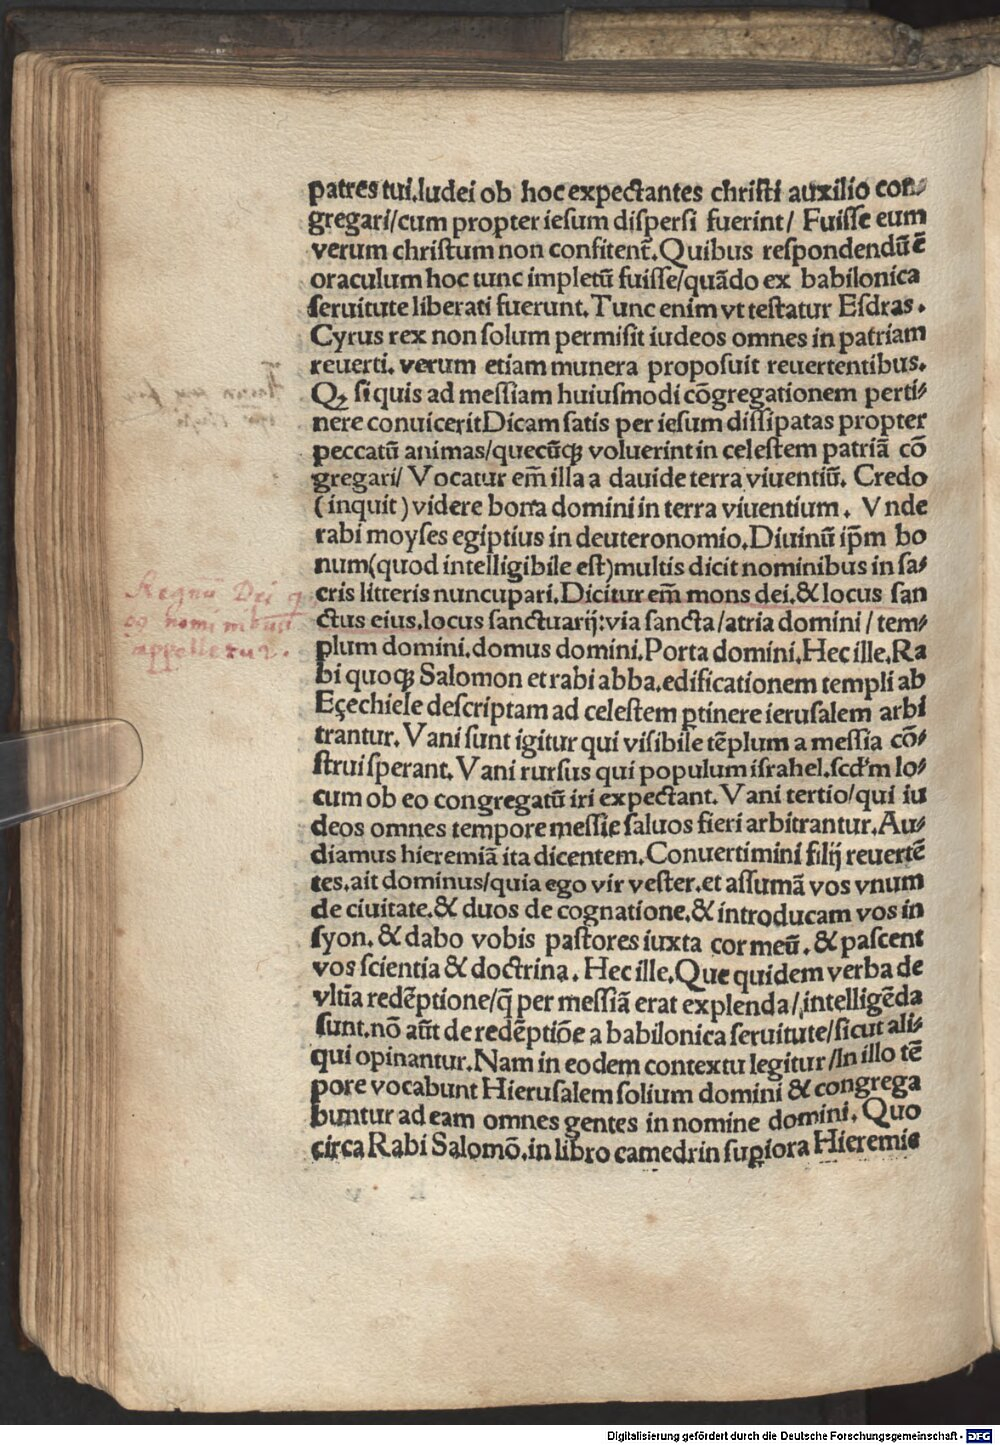 patres tui. Iudei ob hoc expectantes christi auxilio con⸗
gregari/cum propter iesum dispersi fuerint/ Fuisse eum
verum christum non confitent̃. Quibus respondendū ē
oraculum hoc tunc impletū fuisse/quādo ex babilonica
seruitute liberati fuerunt. Tunc enim vt testatur Esdras.
Cyrus rex non solum permisit iudeos omnes in patriam
reuerti. verum etiam munera proposuit reuertentibus.
Qꝫ si quis ad messiam huiusmodi cōgregationem perti⸗
nere conuicerit Dicam satis per iesum dissipatas propter
peccatū animas/quecūqꝫ voluerint in celestem patriā cō
gregari/ Vocatur em̄ illa a dauide terra viuentiū. Credo
(inquit) videre bona domini in terra viuentium. Vnde
rabi moyses egiptius in deuteronomio. Diuinū ip̄m bo
num(quod intelligibile est)multis dicit nominibus in sa⸗
cris litteris nuncupari. Dicitur em̄ mons dei. & locus san
ctus eius. locus sanctuarij: via sancta/atria domini/ tem⸗
plum domini. domus domini. Porta domini. Hec ille. Ra
bi quoqꝫ Salomon et rabi abba. edificationem templi ab
Eçechiele descriptam ad celestem ꝑtinere ierusalem arbi
trantur. Vani sunt igitur qui visibile tēplum a messia cō⸗
strui sperant. Vani rursus qui populum israhel. scd'm lo⸗
cum ob eo congregatū iri expectant. Vani tertio/qui iu
deos omnes tempore messie saluos fieri arbitrantur. Au⸗
diamus hieremiā ita dicentem. Conuertimini filij reuertē
tes. ait dominus/quia ego vir vester. et assumā vos vnum
de ciuitate. & duos de cognatione. & introducam vos in
syon. & dabo vobis pastores iuxta cor meū. & pascent
vos scientia & doctrina. Hec ille. Que quidem verba de
vltīa redēptione/q̄ per messiā erat explenda/ intelligēda
sunt. nō aūt de redēptiōe a babilonica seruitute/sicut ali⸗
qui opinantur. Nam in eodem contextu legitur/In illo tē
pore vocabunt Hierusalem solium domini & congrega
buntur ad eam omnes gentes in nomine domini. Quo
circa Rabi Salomō. in libro camedrin suꝑiora Hieremie
Regnū Dei q
nominibus
appelletur.
Digitalisierung gefördert durch die Deutsche Forschungsgemeinschaft - DFG